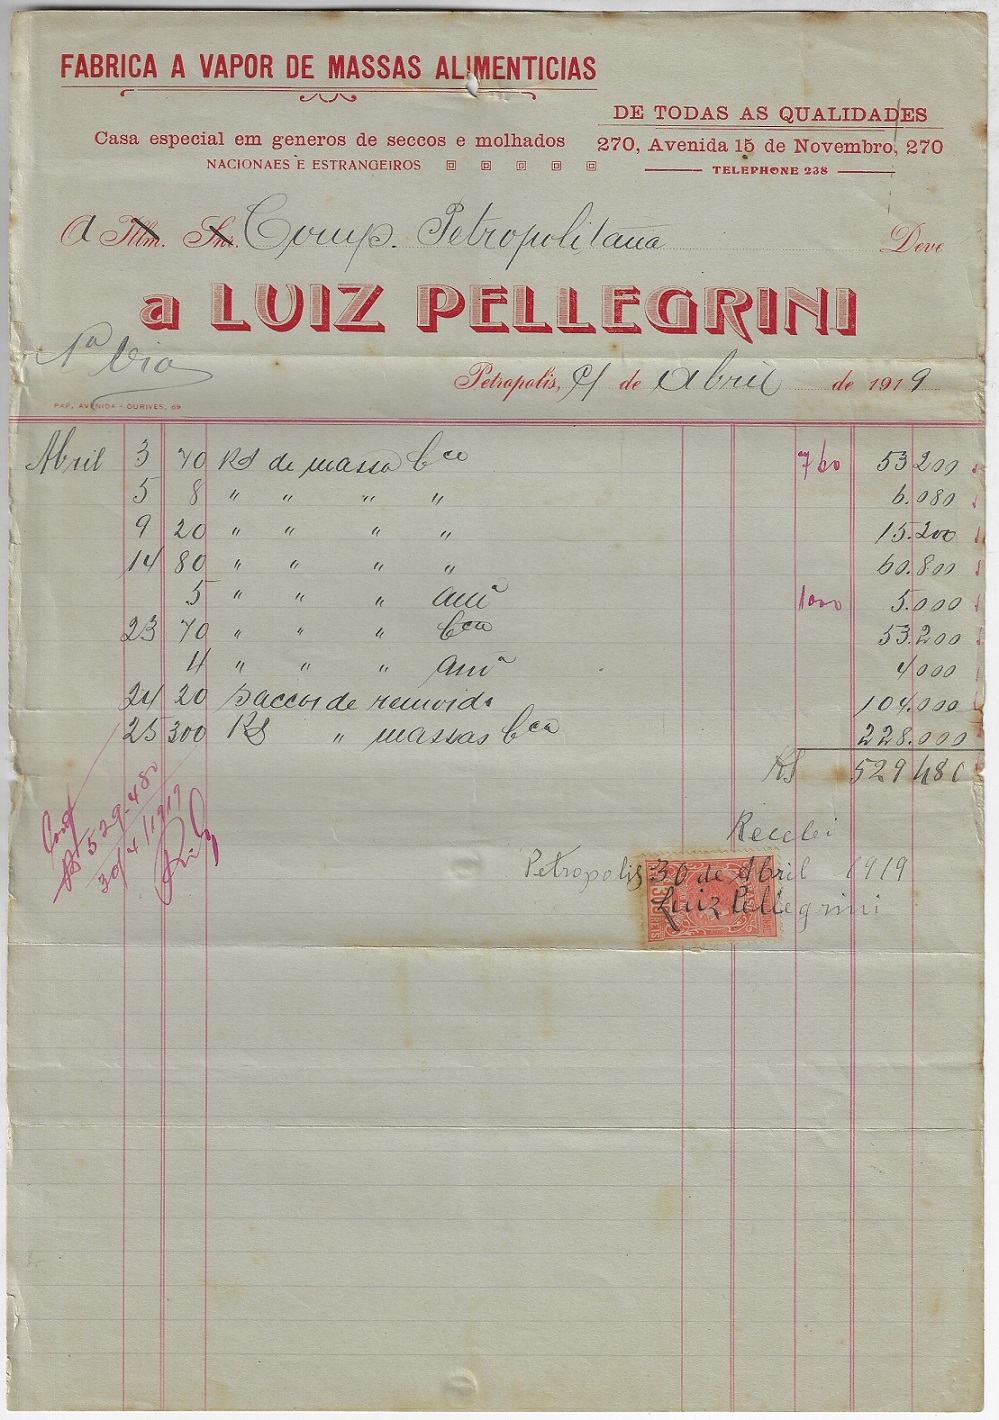 FABRICA A VAPOR DE MASSAS ALIMENTICIAS
DE TODAS AS QUALIDADES
Casa especial em generos de seccos e molhados
270, Avenida 15 de Novembro, 270
NACIONAES E ESTRANGEIROS
TELEPHONE 238
A Illm. Snr. Comp. Petropolitana Deve
a LUIZ PELLEGRINI
1ª Via
Petropolis, de Abril de 1919
PAP. AVENIDA - OURIVES, 69
Abril 3 70 Ks de massa bca 760 53.200
5 8 " " " " 6.080
9 20 " " " " 15.200
14 80 " " " " 60.800
5 " " " amª 1000 5.000
23 70 " " " bca 53.200
4 " " " amª 4000
24 20 Saccos de remoido 104.000
25 300 Ks " massas bca 228.000
RS 529.480
Conf
Rs 529.480
30/4/1919
Recebi
Petropolis 30 de Abril 1919
Luiz Pellegrini
300
REIS